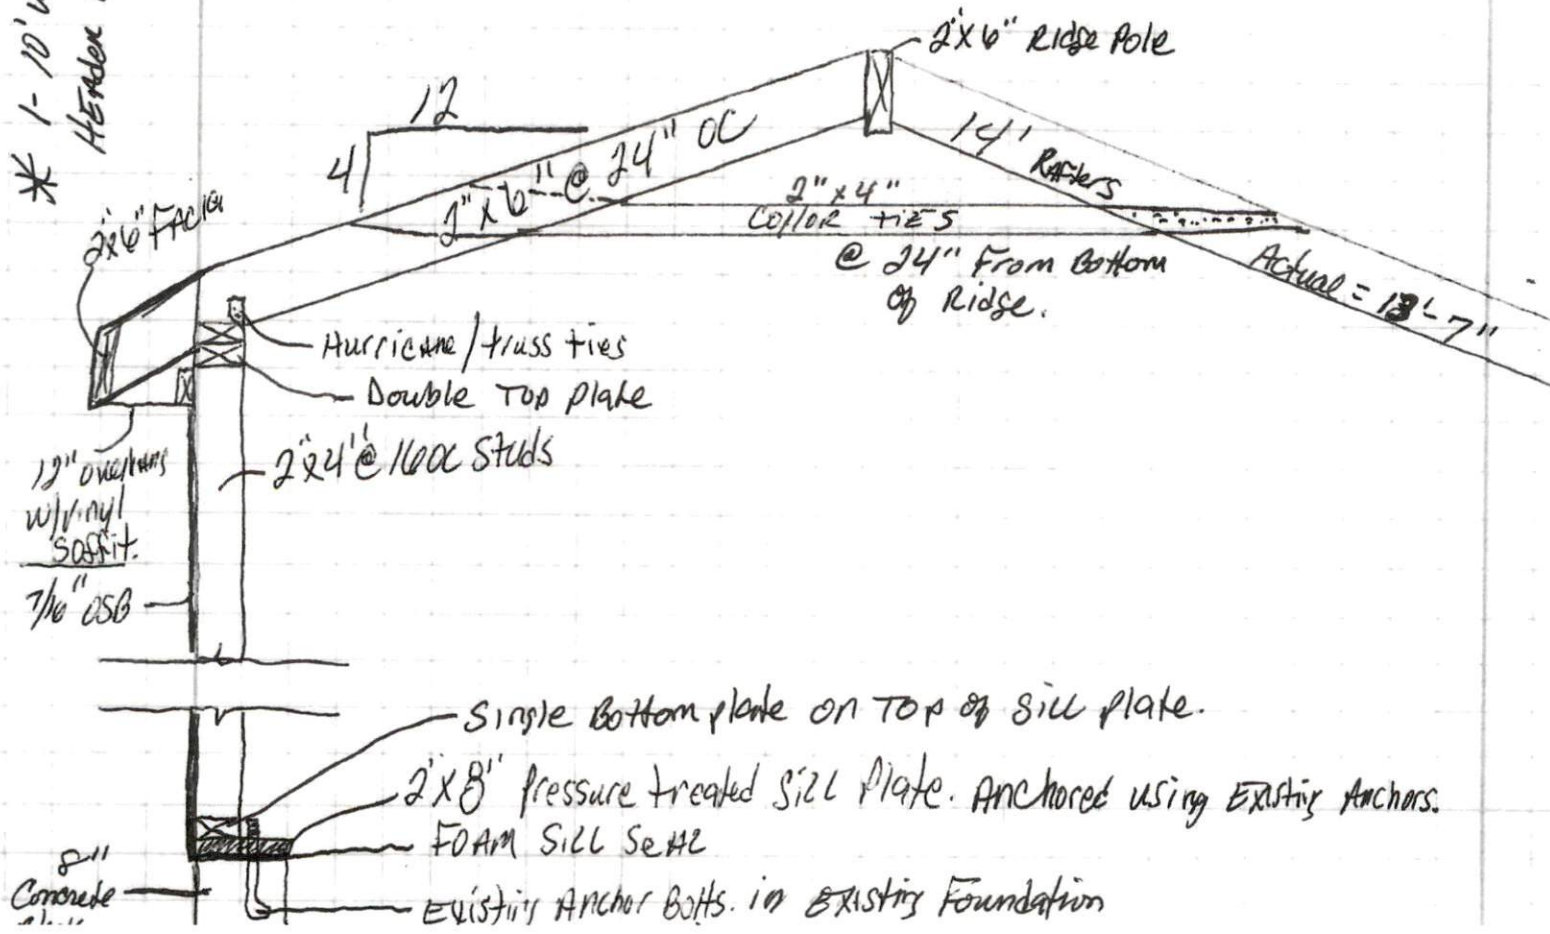 * 1-10'
HEADER
2"x6" Ridge Pole
12
4
2"x6" @ 24" OC
14' Rafters
Actual = 13'-7"
2"x4"
Collor ties
@ 24" From Bottom
of Ridge.
2x6" FACIA
Hurricane/truss ties
Double Top Plate
2"x4" @ 16OC Studs
12" overhang
w/vinyl
Soffit.
7/16" OSB
Single Bottom plate on Top of Sill plate.
2"x8" Pressure treated Sill Plate. Anchored using Existing Anchors.
FOAM Sill SeAL
8"
Concrete
Existing Anchor Bolts. in Existing Foundation